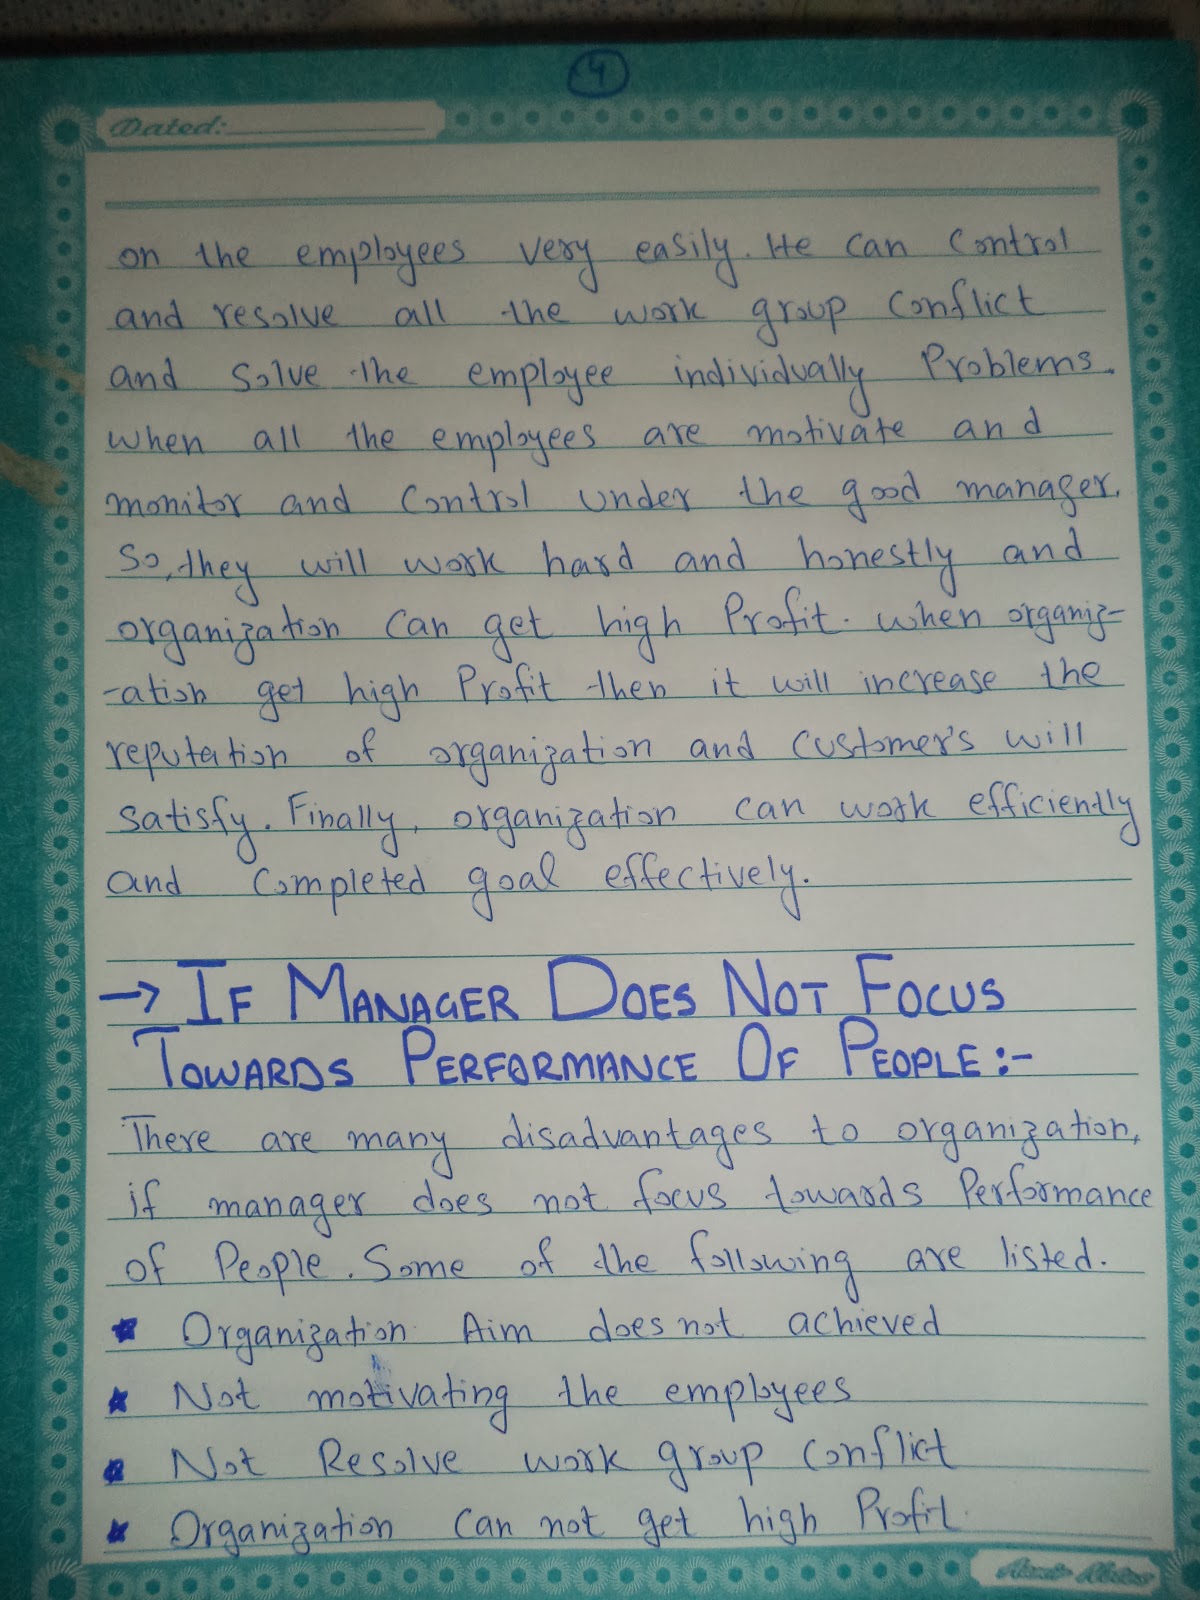 4
Dated:
on the employees very easily. He can control
and resolve all the work group conflict
and solve the employee individually Problems.
when all the employees are motivate and
monitor and control under the good manager.
So, they will work hard and honestly and
organization can get high Profit. when organiz-
-ation get high Profit then it will increase the
reputation of organization and customer's will
satisfy. Finally, organization can work efficiently
and completed goal effectively.
→ IF MANAGER DOES NOT FOCUS
TOWARDS PERFORMANCE OF PEOPLE :-
There are many disadvantages to organization,
if manager does not focus towards Performance
of People. Some of the following are listed.
★ Organization Aim does not achieved
★ Not motivating the employees
★ Not Resolve work group conflict
★ Organization can not get high Profit.